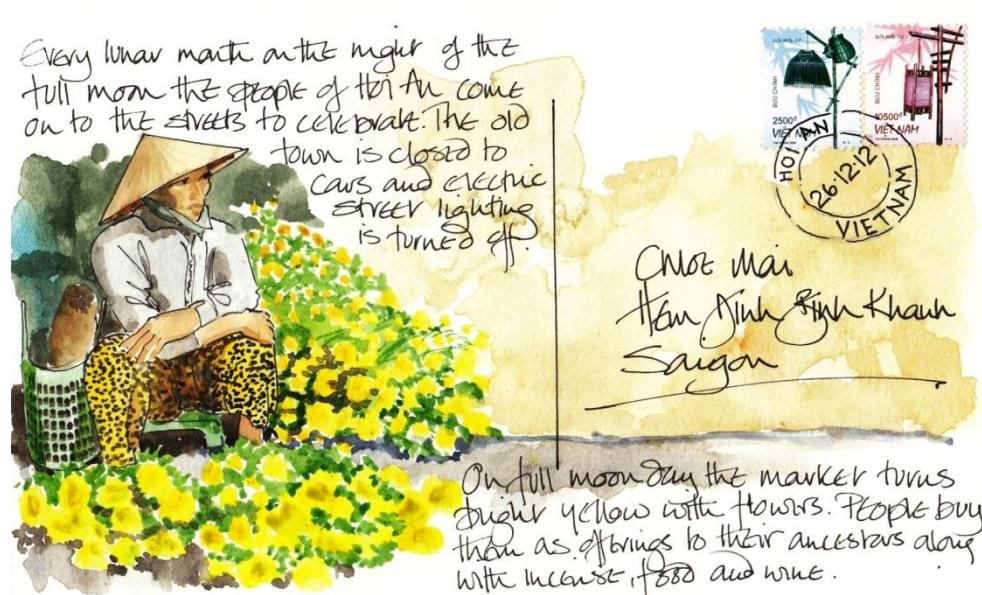 Every lunar month on the night of the
full moon the people of Hoi An come
on to the streets to celebrate. The old
town is closed to
cars and electric
street lighting
is turned off.
BƯU CHÍNH
2500đ
VIỆT NAM
BƯU CHÍNH
10500đ
VIỆT NAM
HOI AN
26·12·12
VIETNAM
Chloe Mai
Hém Dinh Binh Khanh
Saigon
On full moon day the market turns
bright yellow with flowers. People buy
them as offerings to their ancestors along
with incense, food and wine.